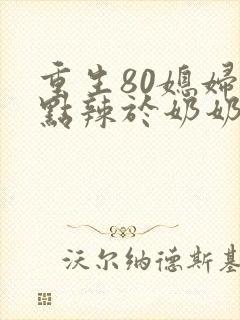 重生80媳婦
點辣於奶奶
沃尔纳德斯基